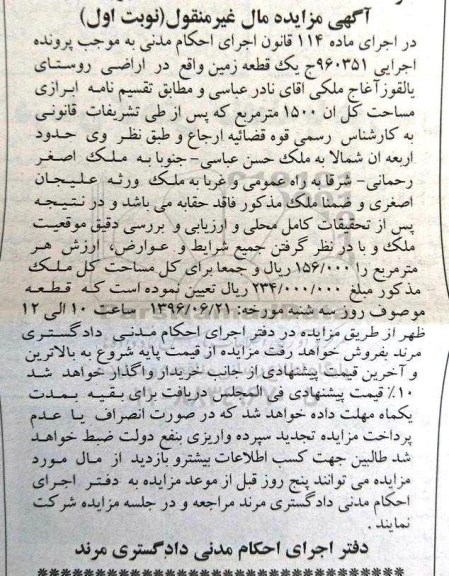 آگهی مزایده مال غیرمنقول(نوبت اول)
در اجرای ماده ۱۱۴ قانون اجرای احکام مدنی به موجب پرونده
اجرایی ۹۶۰۳۵۱ج یک قطعه زمین واقع در اراضی روستای
یالقوزآغاج ملکی اقای نادر عباسی و مطابق تقسیم نامه ابرازی
مساحت کل ان ۱۵۰۰ مترمربع که پس از طی تشریفات قانونی
به کارشناس رسمی قوه قضائیه ارجاع و طبق نظر وی حدود
اربعه ان شمالا به ملک حسن عباسی- جنوبا به ملک اصغر
رحمانی- شرقا به راه عمومی و غربا به ملک ورثه علیجان
اصغری و ضمنا ملک مذکور فاقد حقابه می باشد و در نتیجه
پس از تحقیقات کامل محلی و ارزیابی و بررسی دقیق موقعیت
ملک و با در نظر گرفتن جمیع شرایط و عوارض، ارزش هر
مترمربع را ۱۵۶/۰۰۰ ریال و جمعا برای کل مساحت کل ملک
مذکور مبلغ ۲۳۴/۰۰۰/۰۰۰ ریال تعیین نموده است که قطعه
موصوف روز سه شنبه مورخه: ۱۳۹۶/۰۶/۲۱ ساعت ۱۰ الی ۱۲
ظهر از طریق مزایده در دفتر اجرای احکام مدنی دادگستری
مرند بفروش خواهد رفت مزایده از قیمت پایه شروع به بالاترین
و آخرین قیمت پیشنهادی از جانب خریدار واگذار خواهد شد
۱۰٪ قیمت پیشنهادی فی المجلس دریافت برای بقیه بمدت
یکماه مهلت داده خواهد شد که در صورت انصراف یا عدم
پرداخت مزایده تجدید سپرده واریزی بنفع دولت ضبط خواهد
شد طالبین جهت کسب اطلاعات بیشترو بازدید از مال مورد
مزایده می توانند پنج روز قبل از موعد مزایده به دفتر اجرای
احکام مدنی دادگستری مرند مراجعه و در جلسه مزایده شرکت
نمایند .
دفتر اجرای احکام مدنی دادگستری مرند